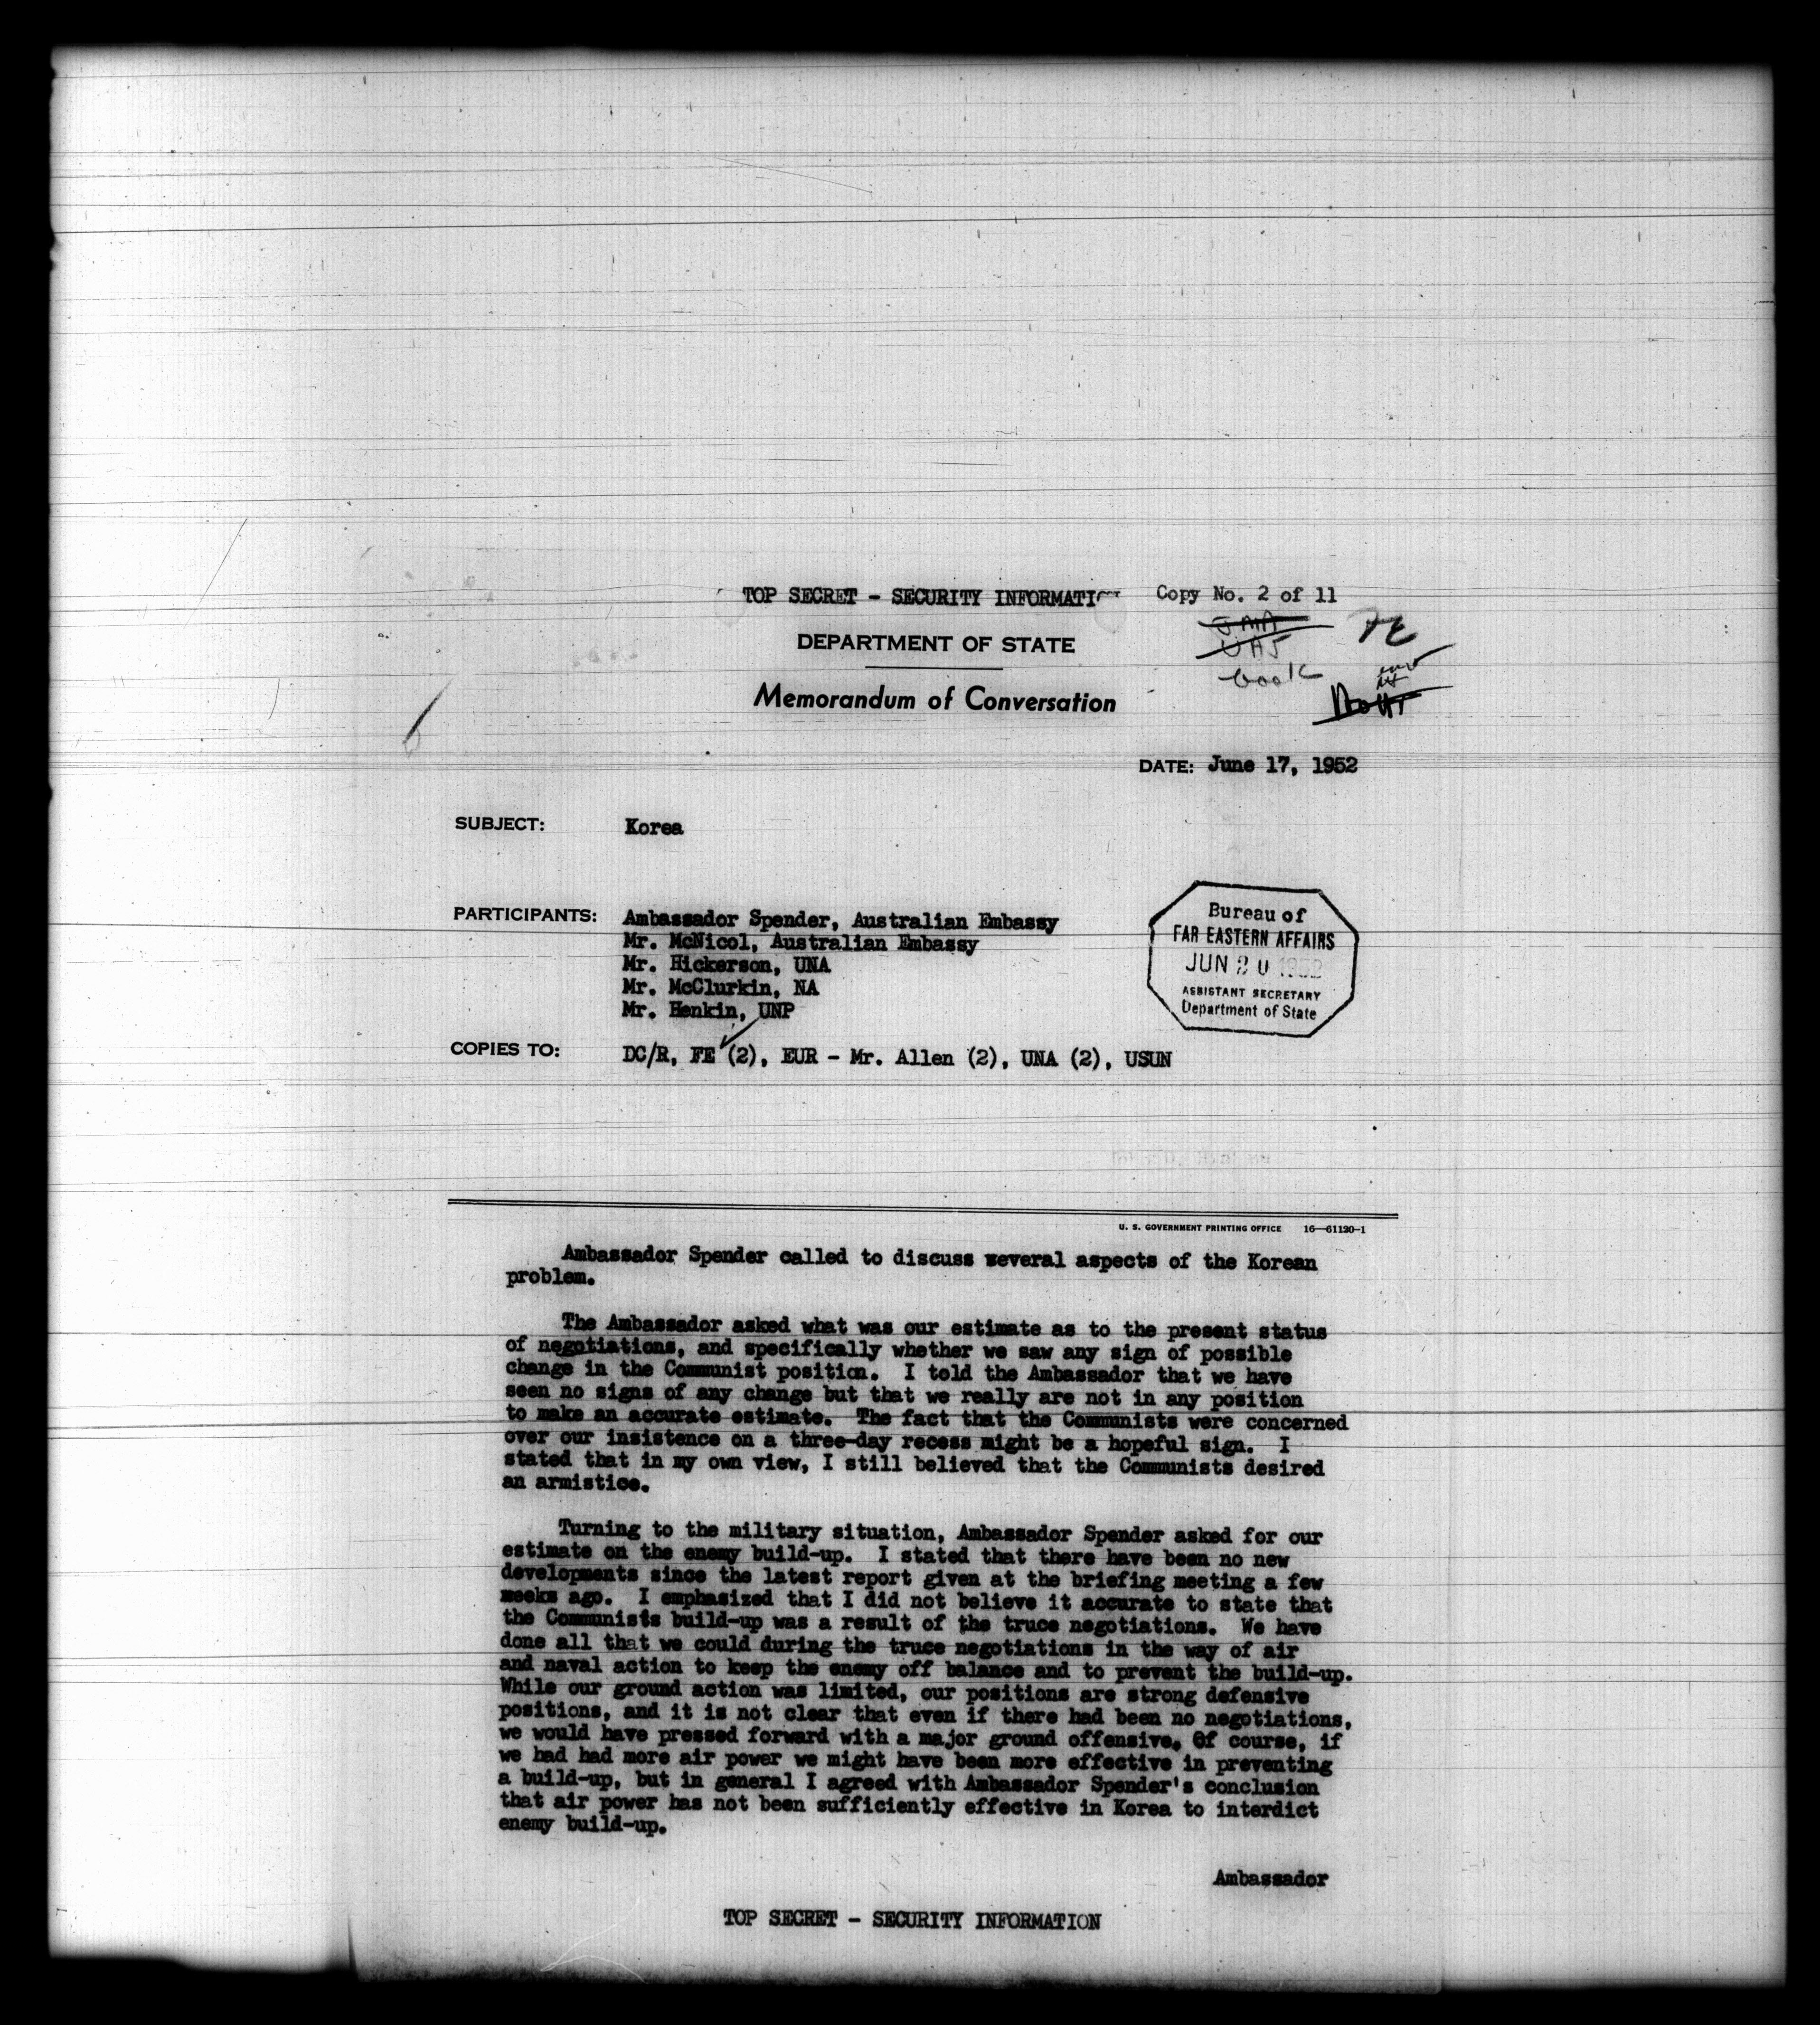 TOP SECRET - SECURITY INFORMATI
Copy No. 2 of 11
DEPARTMENT OF STATE
book
Memorandum of Conversation
DATE: June 17, 1952
SUBJECT: Korea
PARTICIPANTS: Ambassador Spender, Australian Embassy
Mr. McNicol, Australian Embassy
Mr. Hickerson, UNA
Mr. McClurkin, NA
Mr. Henkin, UNP
Bureau of
FAR EASTERN AFFAIRS
JUN 20 1952
ASSISTANT SECRETARY
Department of State
COPIES TO: DC/R, FE (2), EUR - Mr. Allen (2), UNA (2), USUN
U. S. GOVERNMENT PRINTING OFFICE 16—61120-1
Ambassador Spender called to discuss several aspects of the Korean
problem.
The Ambassador asked what was our estimate as to the present status
of negotiations, and specifically whether we saw any sign of possible
change in the Communist position. I told the Ambassador that we have
seen no signs of any change but that we really are not in any position
to make an accurate estimate. The fact that the Communists were concerned
over our insistence on a three-day recess might be a hopeful sign. I
stated that in my own view, I still believed that the Communists desired
an armistice.
Turning to the military situation, Ambassador Spender asked for our
estimate on the enemy build-up. I stated that there have been no new
developments since the latest report given at the briefing meeting a few
weeks ago. I emphasized that I did not believe it accurate to state that
the Communists build-up was a result of the truce negotiations. We have
done all that we could during the truce negotiations in the way of air
and naval action to keep the enemy off balance and to prevent the build-up.
While our ground action was limited, our positions are strong defensive
positions, and it is not clear that even if there had been no negotiations,
we would have pressed forward with a major ground offensive. Of course, if
we had had more air power we might have been more effective in preventing
a build-up, but in general I agreed with Ambassador Spender's conclusion
that air power has not been sufficiently effective in Korea to interdict
enemy build-up.
Ambassador
TOP SECRET - SECURITY INFORMATION